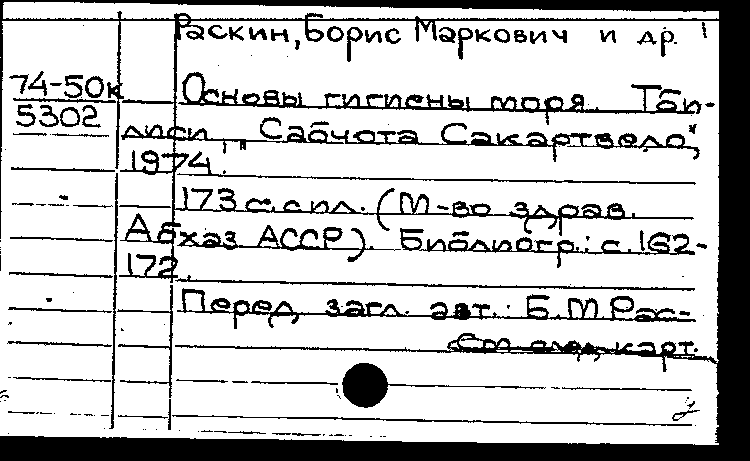 Раскин, Борис Маркович и др.
74-50к
5302
Основы гигиены моря. Тби-
лиси, "Сабчота Сакартвело",
1974.
173 с. с ил. (М-во здрав.
Абхаз АССР). Библиогр.: с. 162-
172.
Перед загл. авт.: Б.М. Рас-
См след. карт.